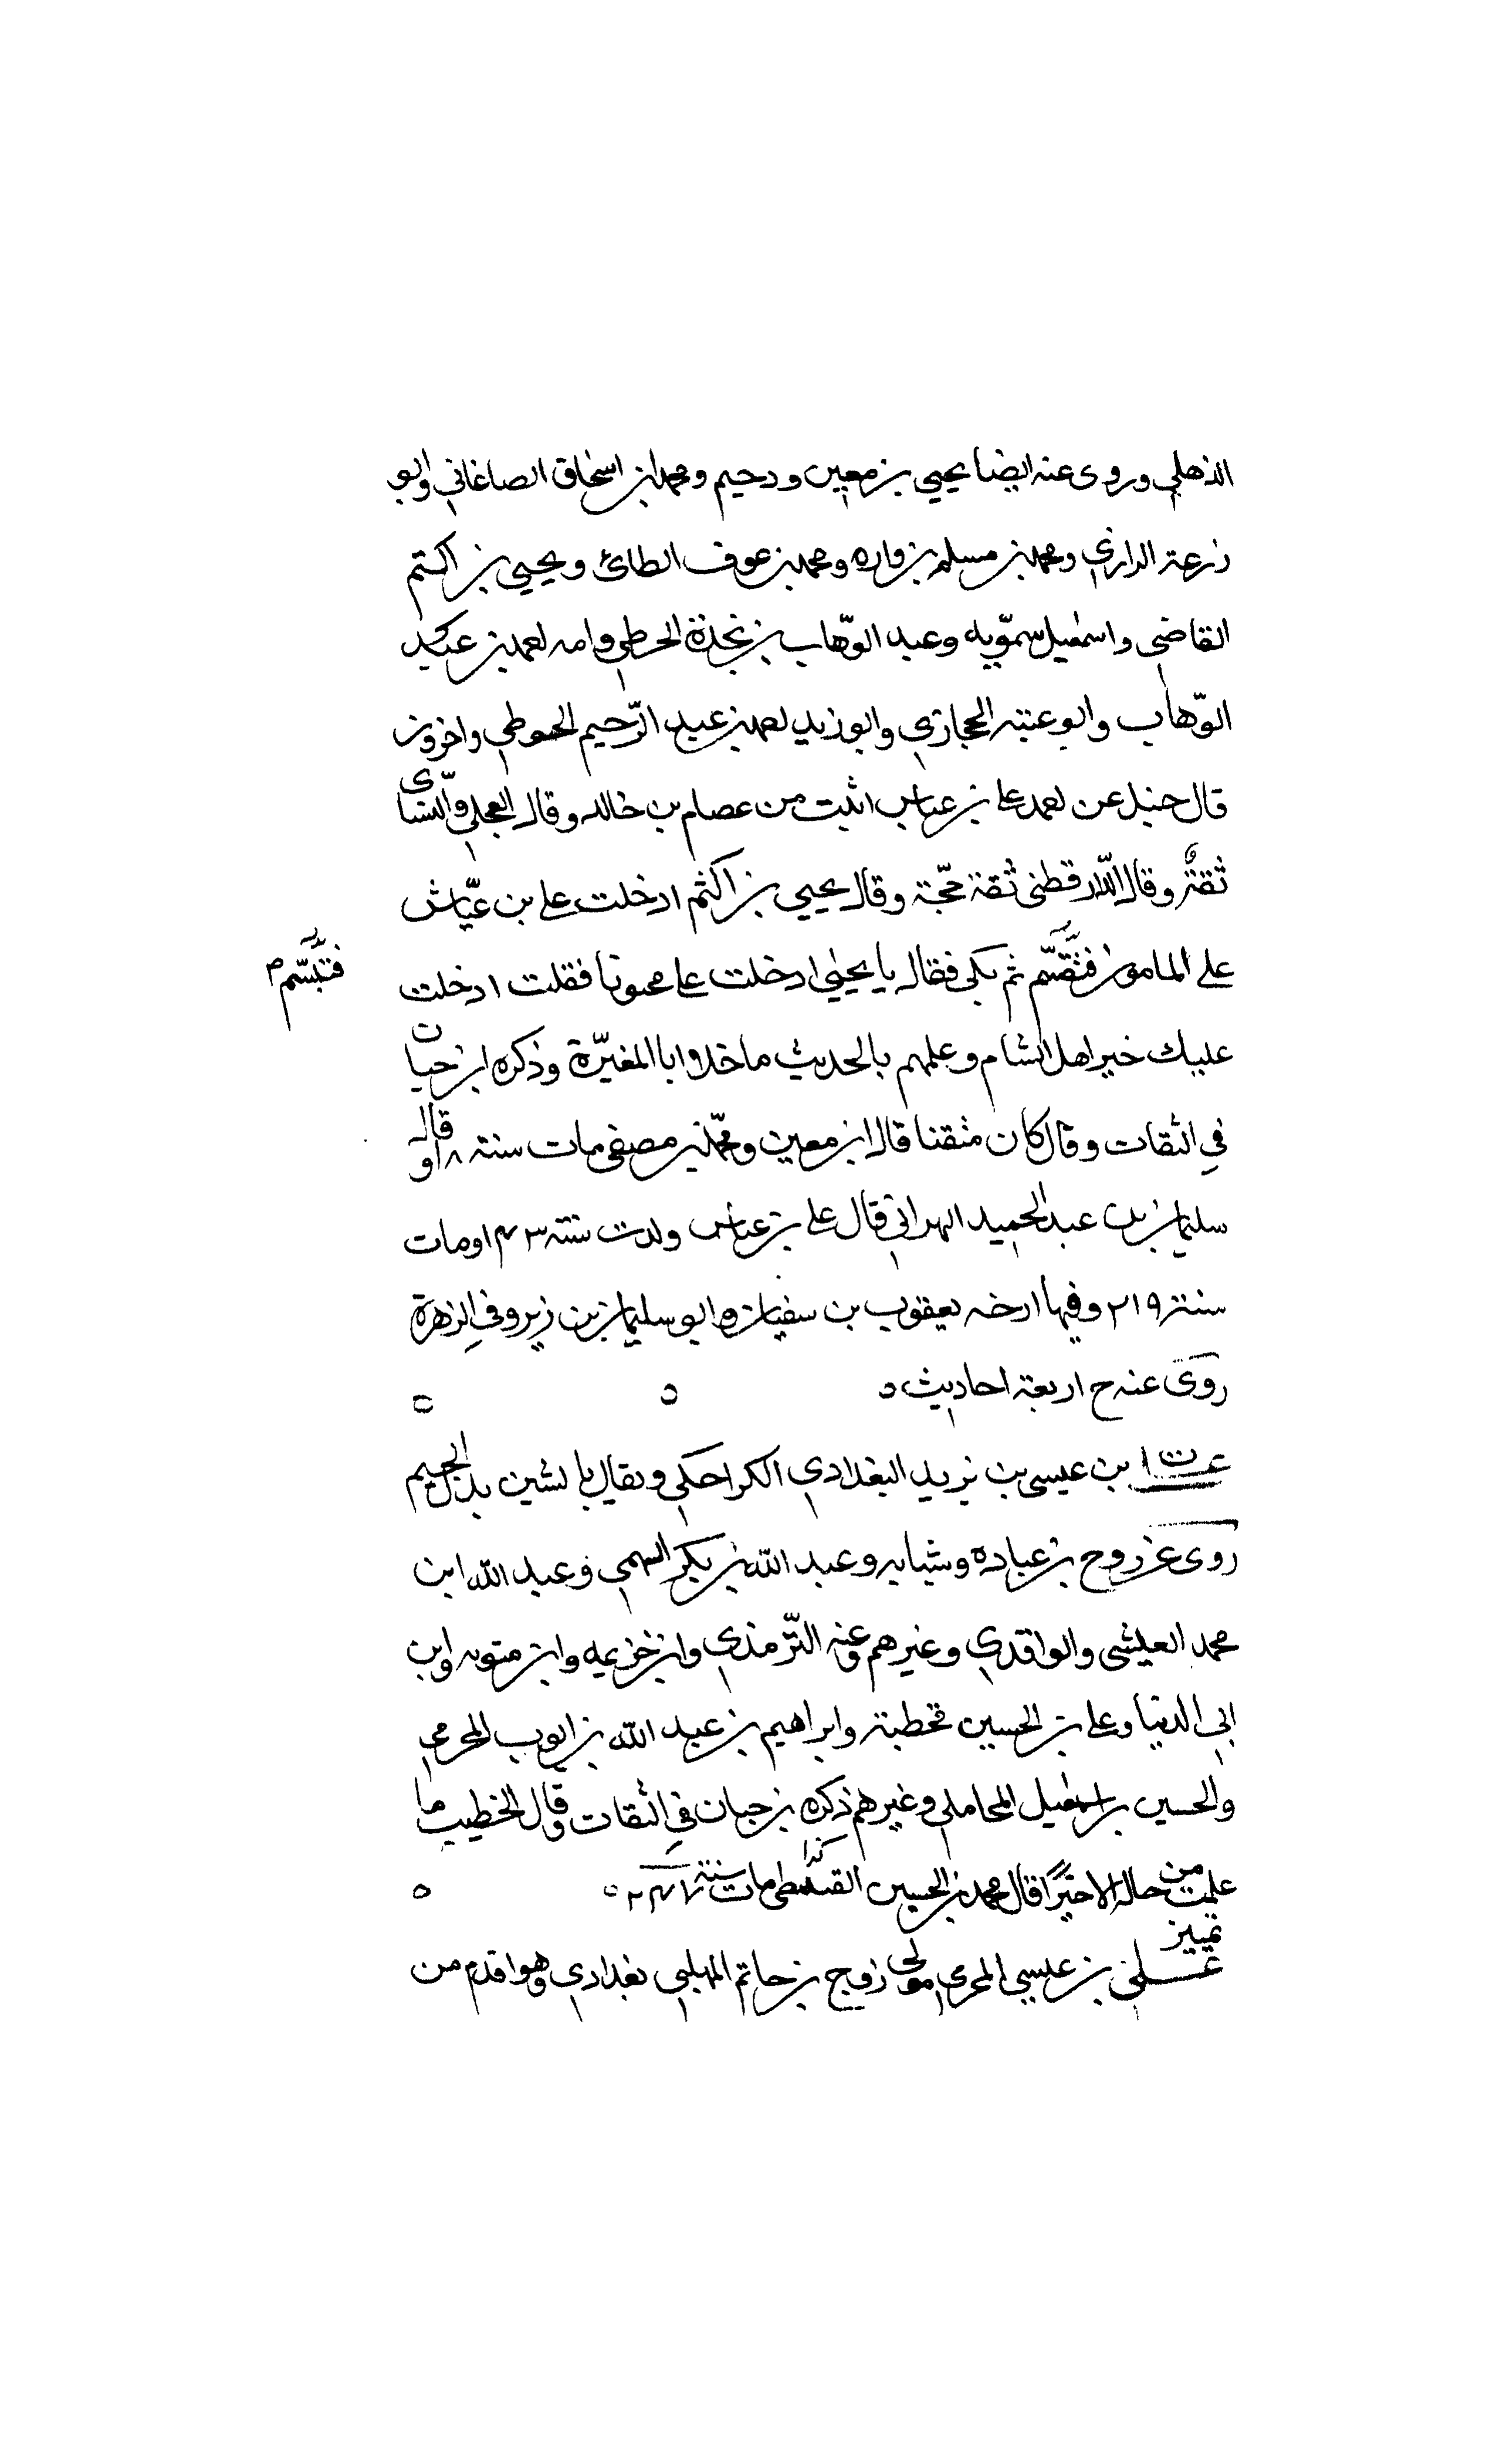 الذهلي وروى عنه ايضا يحيى بن معين ودحيم ومحمد بن اسحاق الصاغاني وابو
زرعة الرازي ومحمد بن مسلم بن واره ومحمد بن عوف الطائ ويحيى بن اكتم
القاضي واسمعيل سمّويه وعبد الوّهاب بن نجدة الحوطي وابنه احمد بن عبد
الوّهاب وابو عتبه الحجازي وابو زيد احمد بن عبد الرّحيم الحوطي واخرون
قال حنبل عن احمد علي بن عياش اثبت من عصام بن خالد وقال العجلي والنّسائ
ثقةٌ وقال الدّارقطني ثقة حجّة وقال يحيى بن اكثم ادخلت علي بن عيّاش
على المامون فتبسّم ثم بكى فقال يا يحيى ادخلت علي مجنونا فقلت ادخلت
فتبسّم م
عليك خير اهل الشام وعلمهم بالحديث ما خلا ابا المغيّرة وذكره ابن حبان
في الثقات وقال كان متقنا قال ابن معين ومحمّد بن مصفى مات سنة ١٨ وقال
سليمان بن عبد الحميد البهراني قال علي بن عياش ولدت سنة ١٤٣ ومات
سنة ٢١٩ وفيها ارخه يعقوب بن سفيان وابو سليمان بن زبر وفي الزهرة
روى عنه خ اربعة احاديث
عت ابن عيسى بن يزيد البغدادي الكراجكي ويقال بالشين بدل الجيم
روى عن روح بن عباده وشبابه وعبد الله بن بكر السهمي وعبد الله ابن
محمد العيشى والواقدي وغيرهم وعنه التّرمذي وابن خزيمه وابن متويه وابن
ابي الدنيا وعلي بن الحسين قحطبة وابراهيم بن عبد الله بن ايوب المخرمي
والحسين بن اسمعيل المحاملي وغيرهم ذكره بن حبان في الثقات وقال الخطيب ما
علمت من حاله الا خيرًا قال محمد بن الحسين القنبيطي مات سنة ٢٤٧
تمييز
علي بن عيسى المخرمي مولى روح بن حاتم المهلبي بغدادي وهو اقدم من